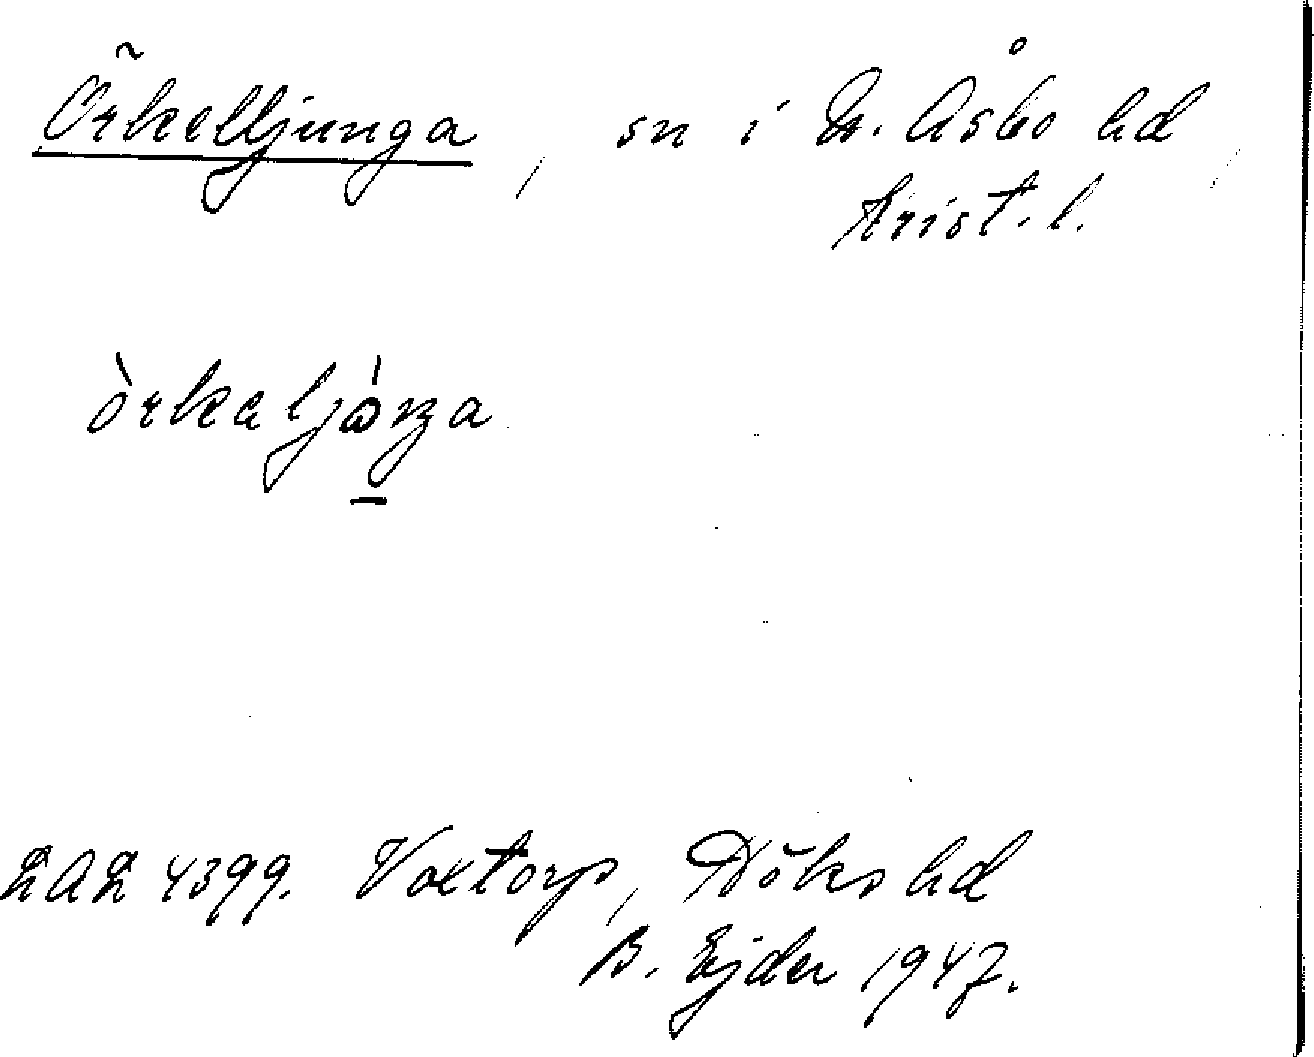 Örkelljunga, sn i N. Åsbo hd,
Krist. l.
òrkaljòŋa
LAL 4399. Voxtorp, Höks hd
B. Ejder 1947.